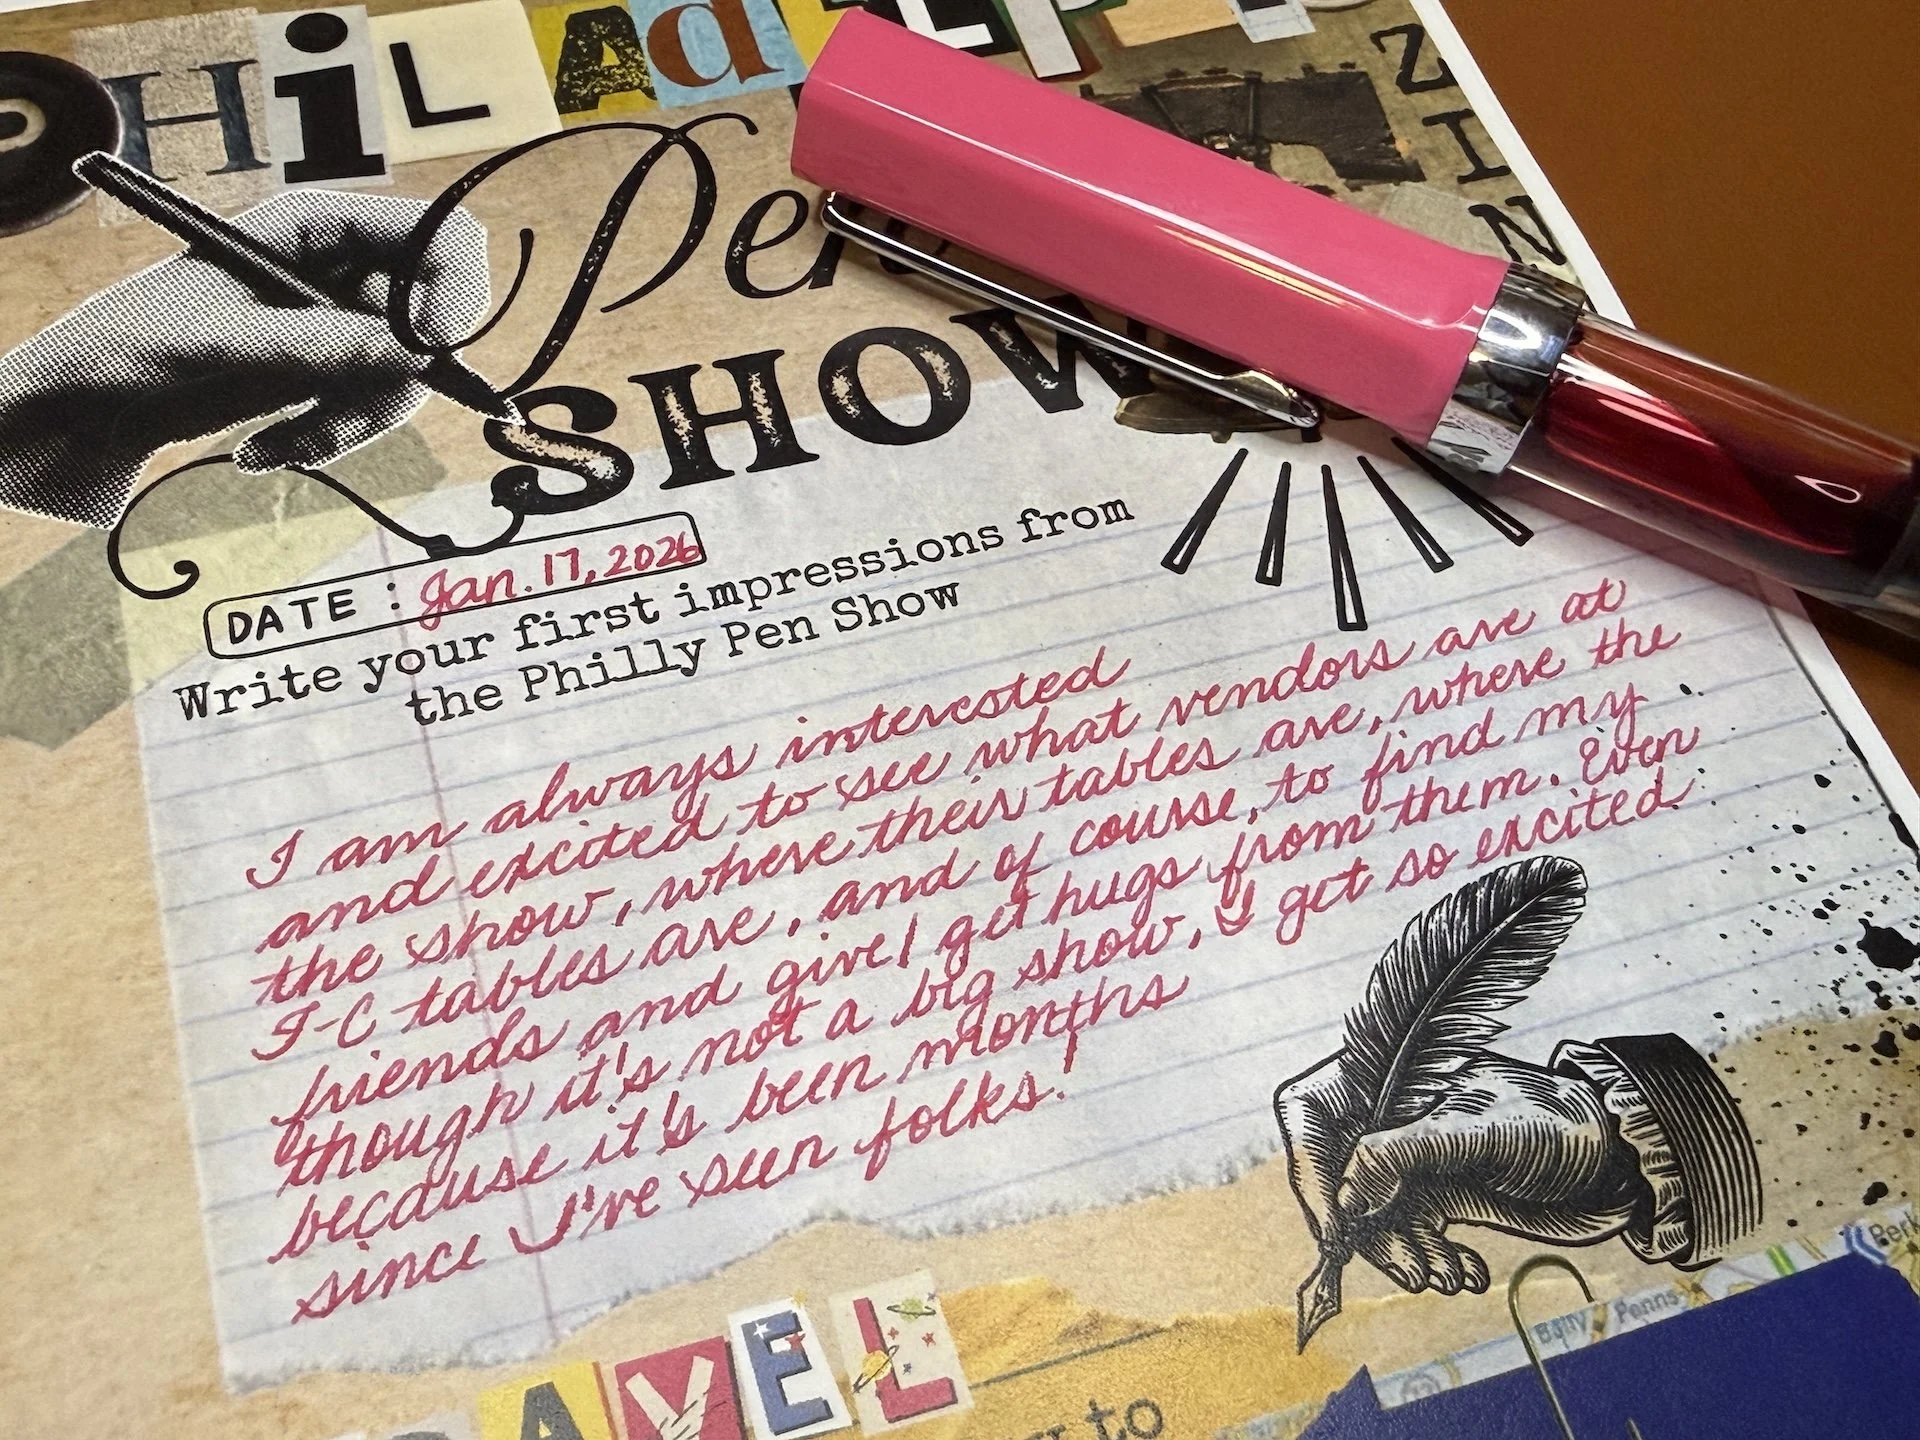 PHiLAdELP
Z
I
N
Pen
SHOW
DATE : Jan. 17, 2026
Write your first impressions from
the Philly Pen Show
I am always interested
and excited to see what vendors are at
the show, where their tables are, where the
I-C tables are, and of course, to find my
friends and give/get hugs from them. Even
though it's not a big show, I get so excited
because it's been months
since I've seen folks!
AVEL
to
Penns
Perk